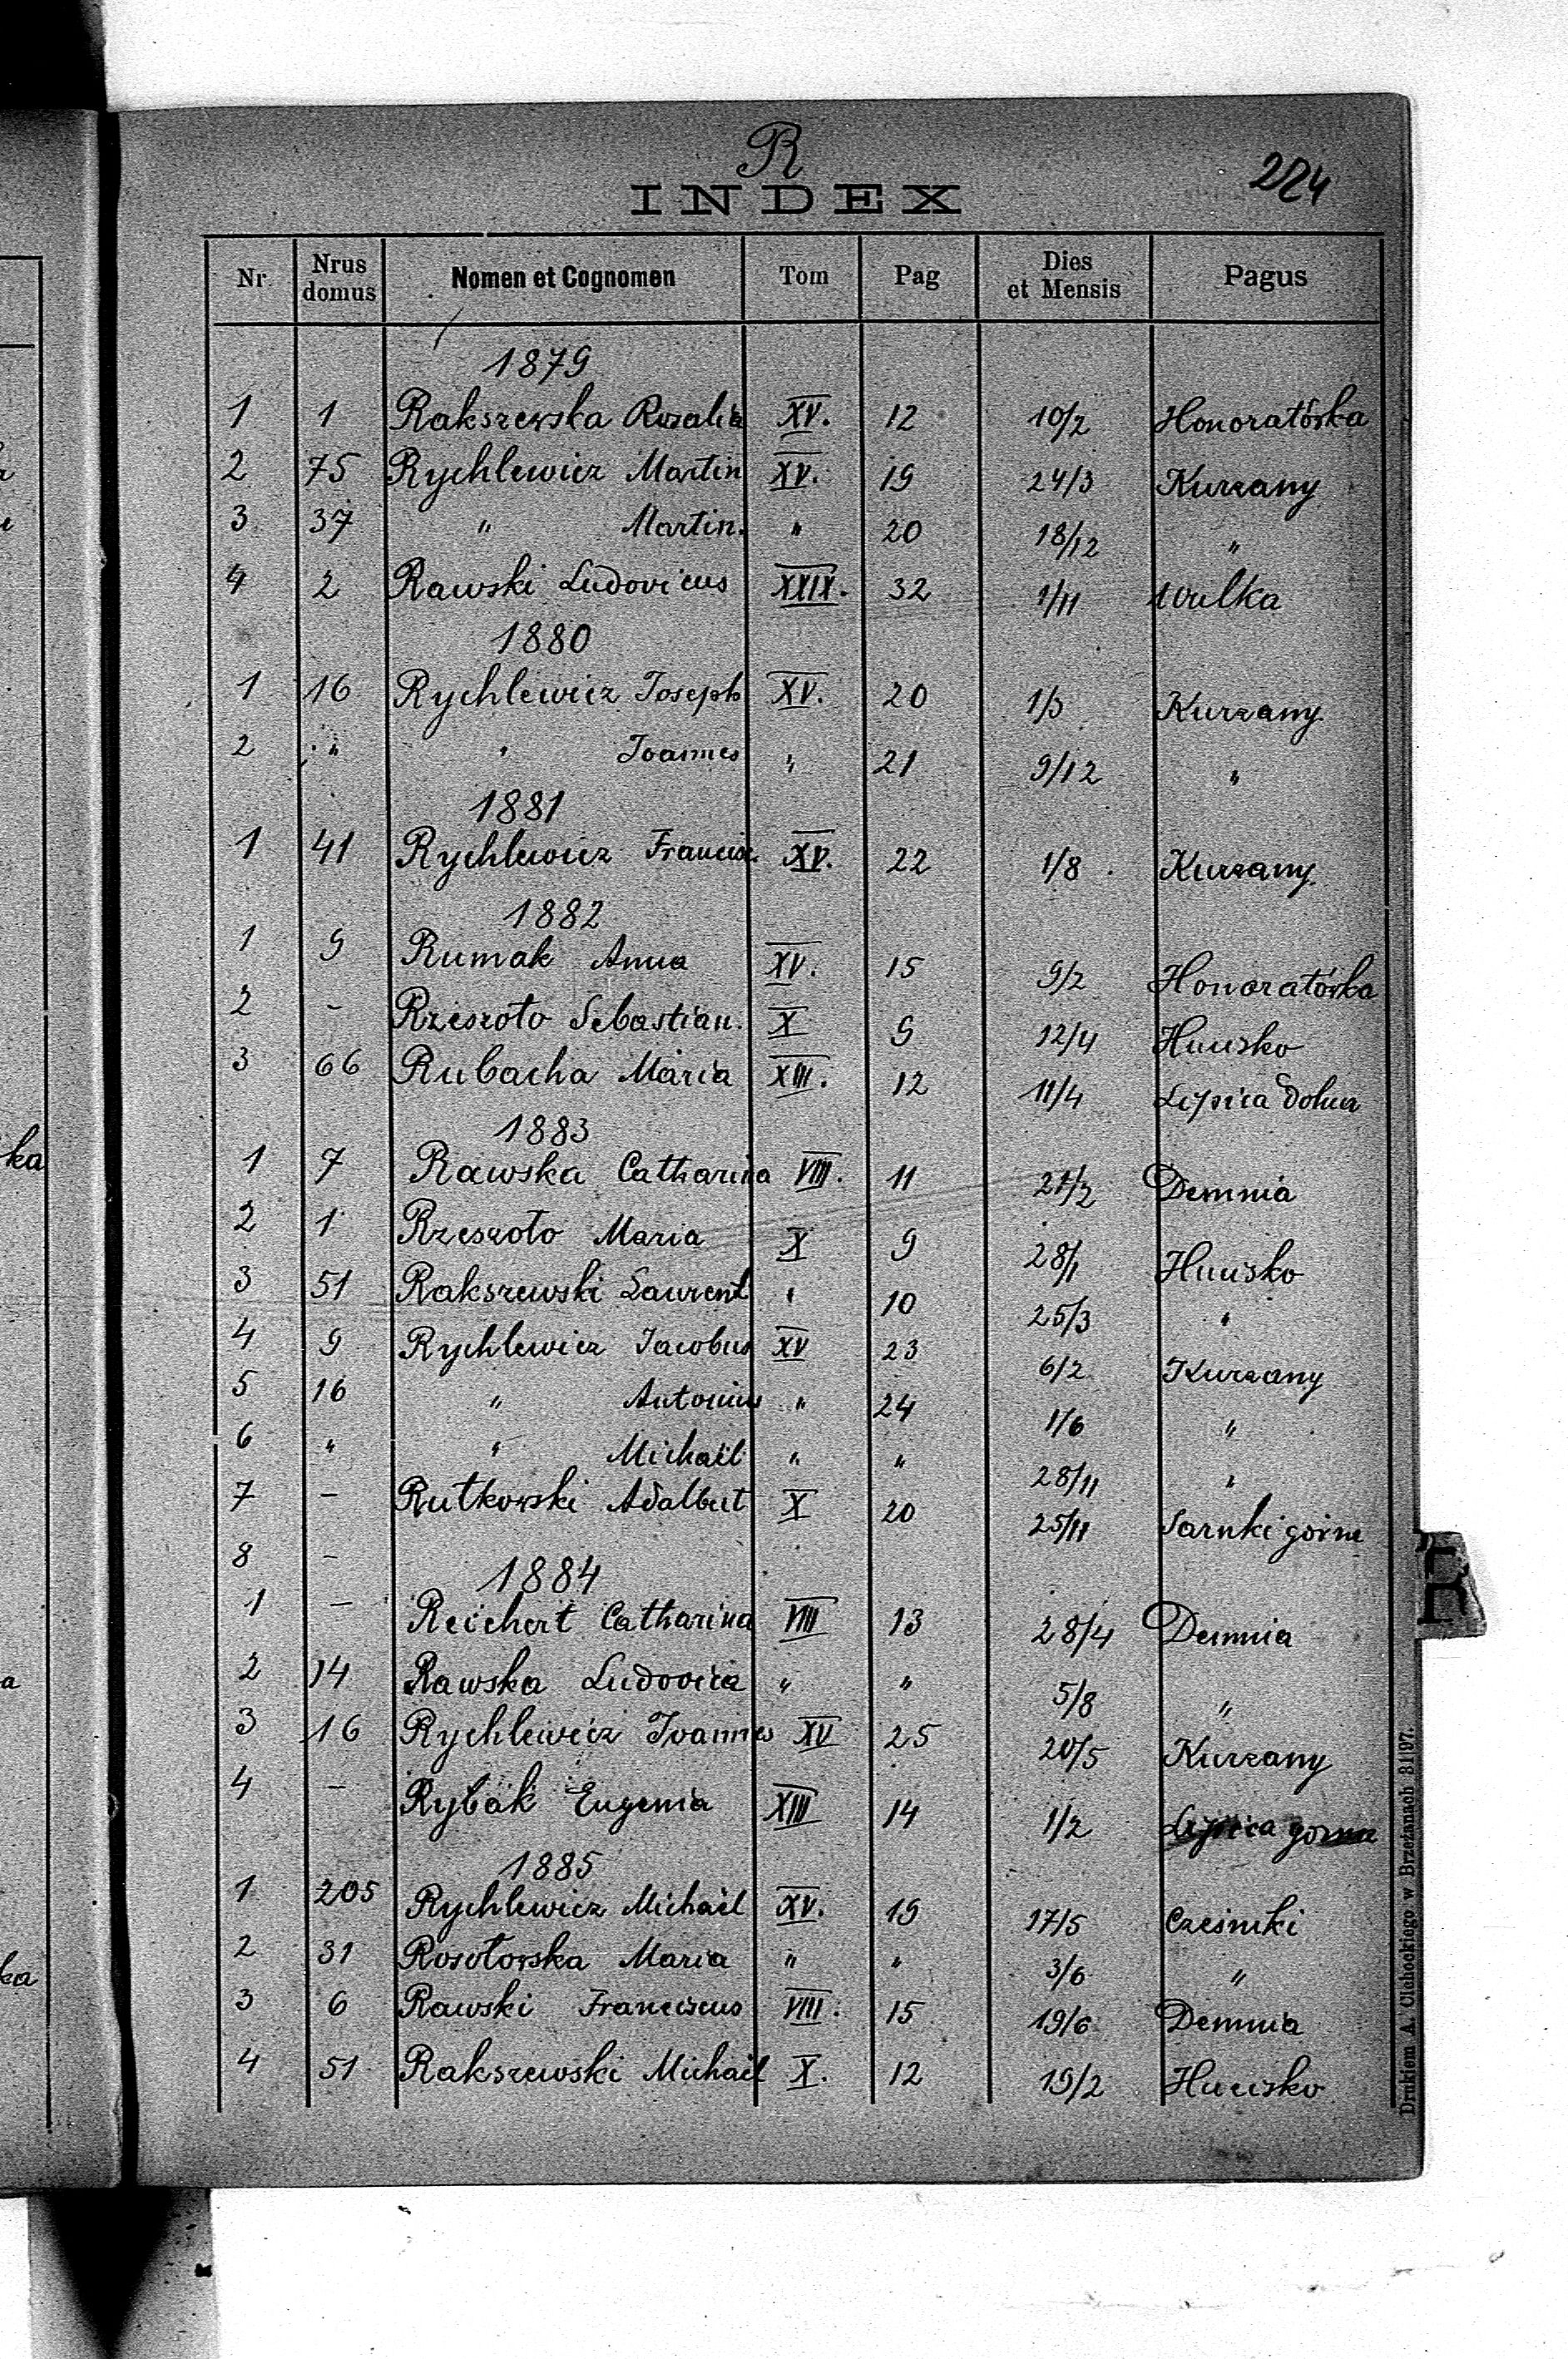 R
224
INDEX
Nr. Nrus domus Nomen et Cognomen Tom Pag Dies et Mensis Pagus
1879
1 1 Rakszewska Rozalia XV. 12 10/2 Honoratówka
2 75 Rychlewicz Martin XV. 19 24/3 Kurzany
3 37 " Martin. " 20 18/12 "
4 2 Rawski Ludovicus XXIX. 32 1/11 Wulka
1880
1 16 Rychlewicz Joseph XV. 20 1/3 Kurzany
2 " " Joannes " 21 9/12 "
1881
1 41 Rychlewicz Francisc. XV. 22 1/8 Kurzany.
1882
1 9 Rumak Anna XV. 15 9/2 Honoratówka
2 - Rzeszoto Sebastian. X 9 12/4 Hucisko
3 66 Rubacha Maria XIII. 12 11/4 Lipica dolna
1883
1 7 Rawska Catharina VIII. 11 /2 Demnia
2 1 Rzeszoto Maria X 9 28/1 Hucisko
3 51 Rakszewski Laurent " 10 25/3 "
4 9 Rychlewicz Jacobus XV 23 6/2 Kurzany
5 16 " Antonius " 24 1/6 "
6 " " Michaël " " 28/11 "
7 - Rutkowski Adalbert X 20 25/11 Sarnki górne
8 -
1884
1 - Reichert Catharina VIII 13 28/4 Demnia
2 14 Rawska Ludovica " " 5/8 "
3 16 Rychlewicz Joannes XV 25 20/5 Kurzany
4 - Rybak Eugenia XIII 14 1/2 Lipica górna
1885
1 205 Rychlewicz Michaël XV. 19 17/5 Cześniki
2 31 Rosołowska Maria " " 3/6 "
3 6 Rawski Franciscus VIII. 15 19/6 Demnia
4 51 Rakszewski Michaël X. 12 19/2 Hucisko
R
Drukiem A. Cichockiego w Brzeżanach 31|97.